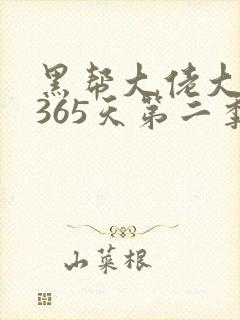 黑帮大佬大
365天第二季
山菜根